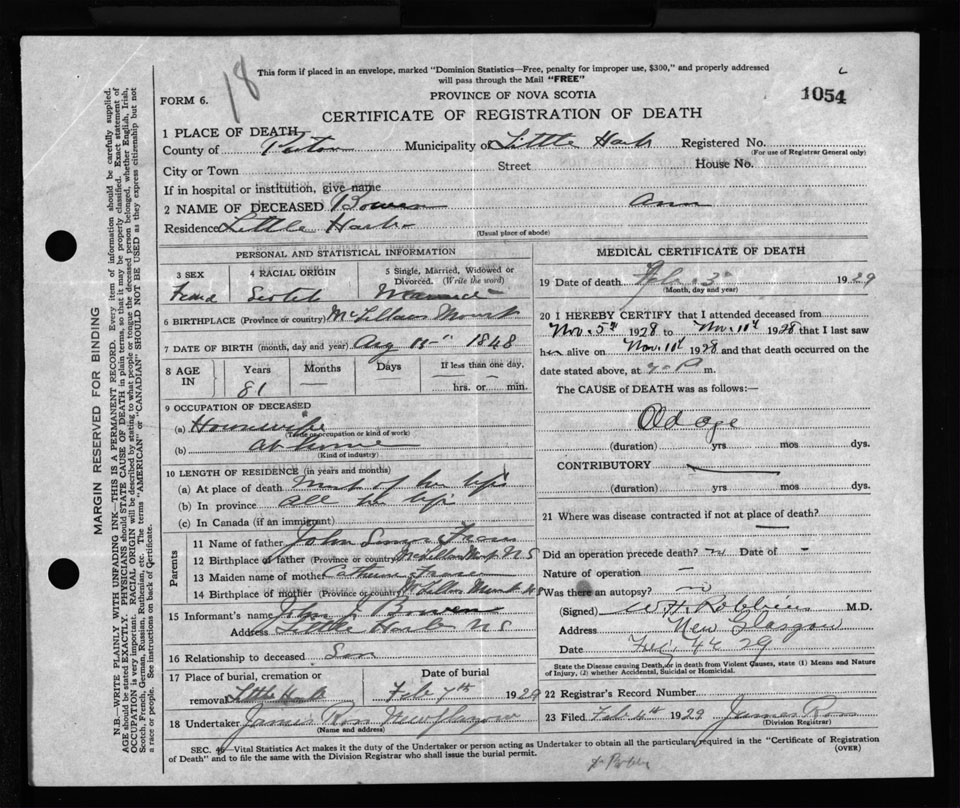 18
This form if placed in an envelope, marked "Dominion Statistics—Free, penalty for improper use, $300," and properly addressed
will pass through the Mail "FREE"
FORM 6.
PROVINCE OF NOVA SCOTIA
1054
CERTIFICATE OF REGISTRATION OF DEATH
1 PLACE OF DEATH
County of Pictou Municipality of Little Harb Registered No.
(For use of Registrar General only)
City or Town Street House No.
If in hospital or institution, give name
2 NAME OF DECEASED Bowen Ann
Residence Little Harbr
(Usual place of abode)
PERSONAL AND STATISTICAL INFORMATION
3 SEX 4 RACIAL ORIGIN 5 Single, Married, Widowed or Divorced. (Write the word)
Scotch
6 BIRTHPLACE (Province or country) McLellans
7 DATE OF BIRTH (month, day and year) Aug 1848
8 AGE IN Years Months Days If less than one day,
81 — hrs. or min.
9 OCCUPATION OF DECEASED
(a) Housewife
(Trade or occupation or kind of work)
(b) At home
(Kind of industry)
10 LENGTH OF RESIDENCE (in years and months)
(a) At place of death Most of her life
(b) In province all her life
(c) In Canada (if an immigrant)
Parents
11 Name of father John Simon Fraser
12 Birthplace of father (Province or country) N S
13 Maiden name of mother Catherine Fraser
14 Birthplace of mother (Province or country) McLellans
15 Informant's name John J. Bowen
Address Little Harb N S
16 Relationship to deceased Son
17 Place of burial, cremation or removal Little Harb Date of burial Feb 7th 1929
18 Undertaker James Ross New Glasgow
(Name and address)
MEDICAL CERTIFICATE OF DEATH
19 Date of death Feb. 3 1929
(Month, day and year)
20 I HEREBY CERTIFY that I attended deceased from
Nov. 5th 1928 to Nov. 10th 1928 that I last saw
her alive on Nov. 10th 1928 and that death occurred on the
date stated above, at m.
The CAUSE of DEATH was as follows:—
Old age
(duration) yrs mos dys.
CONTRIBUTORY
(duration) yrs mos dys.
21 Where was disease contracted if not at place of death?
Did an operation precede death? no Date of -
Nature of operation -
Was there an autopsy? no
(Signed) W H Robbins M.D.
Address New Glasgow
Date 29
State the Disease causing Death, or in death from Violent Causes, state (1) Means and Nature
of Injury, (2) whether Accidental, Suicidal or Homicidal.
22 Registrar's Record Number
23 Filed Feb 4th 1929 James Ross
(Division Registrar)
SEC. Vital Statistics Act makes it the duty of the Undertaker or person acting as Undertaker to obtain all the particulars required in the "Certificate of Registration
of Death" and to file the same with the Division Registrar who shall issue the burial permit.
(OVER)
MARGIN RESERVED FOR BINDING
N.B.—WRITE PLAINLY WITH UNFADING INK—THIS IS A PERMANENT RECORD. Every item of information should be carefully supplied.
AGE should be stated EXACTLY. PHYSICIANS should STATE CAUSE OF DEATH in plain terms, so that it may be properly classified. Exact statement of
OCCUPATION is very important. RACIAL ORIGIN will be described by stating to what people or tongue the deceased person belonged, whether English, Irish,
Scotch, French, German, Russian, Ruthenian, etc. The terms "AMERICAN" or "CANADIAN" SHOULD NOT BE USED as they express citizenship but not
a race or people. See instructions on back of Certificate.